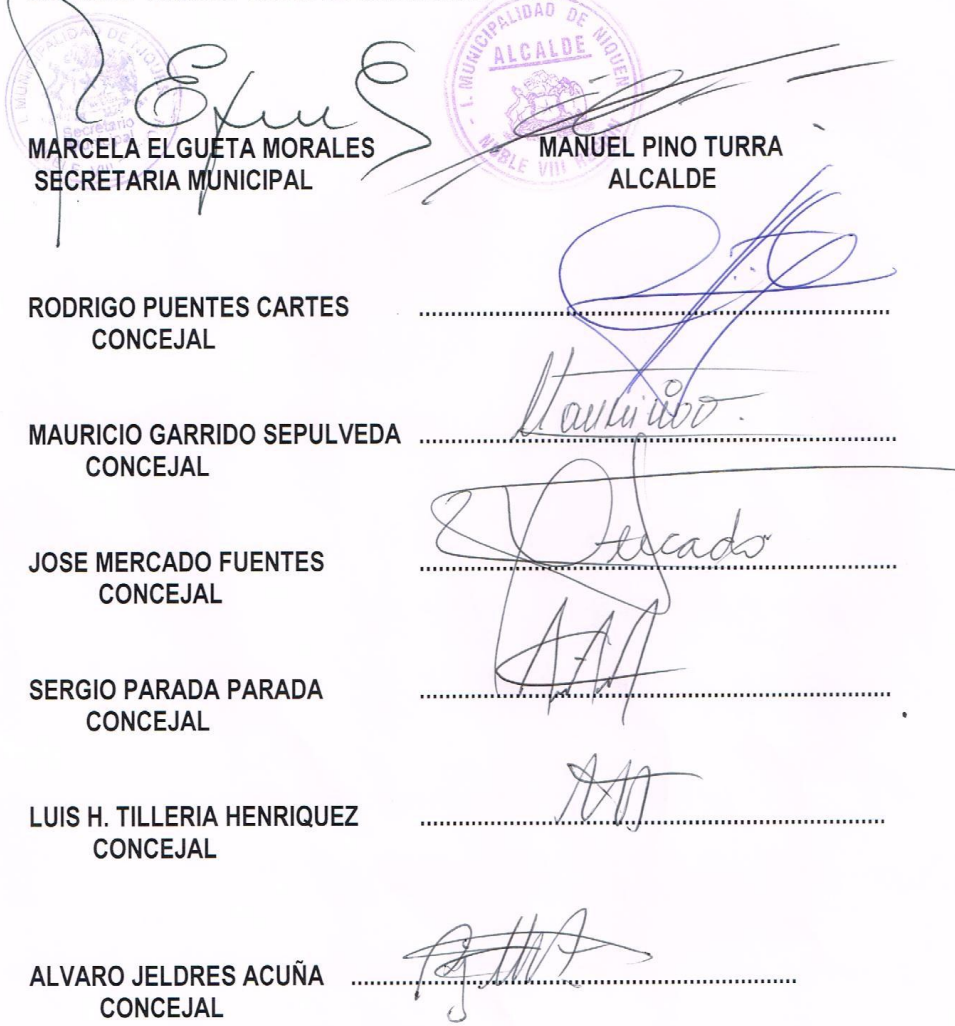 I. MUNICIPALIDAD DE ÑIQUEN
Secretario
I. MUNICIPALIDAD DE ÑIQUEN
ALCALDE
ÑUBLE VIII
MARCELA ELGUETA MORALES
SECRETARIA MUNICIPAL
MANUEL PINO TURRA
ALCALDE
RODRIGO PUENTES CARTES
CONCEJAL
Mauricio
MAURICIO GARRIDO SEPULVEDA
CONCEJAL
Mercado
JOSE MERCADO FUENTES
CONCEJAL
SERGIO PARADA PARADA
CONCEJAL
LUIS H. TILLERIA HENRIQUEZ
CONCEJAL
ALVARO JELDRES ACUÑA
CONCEJAL